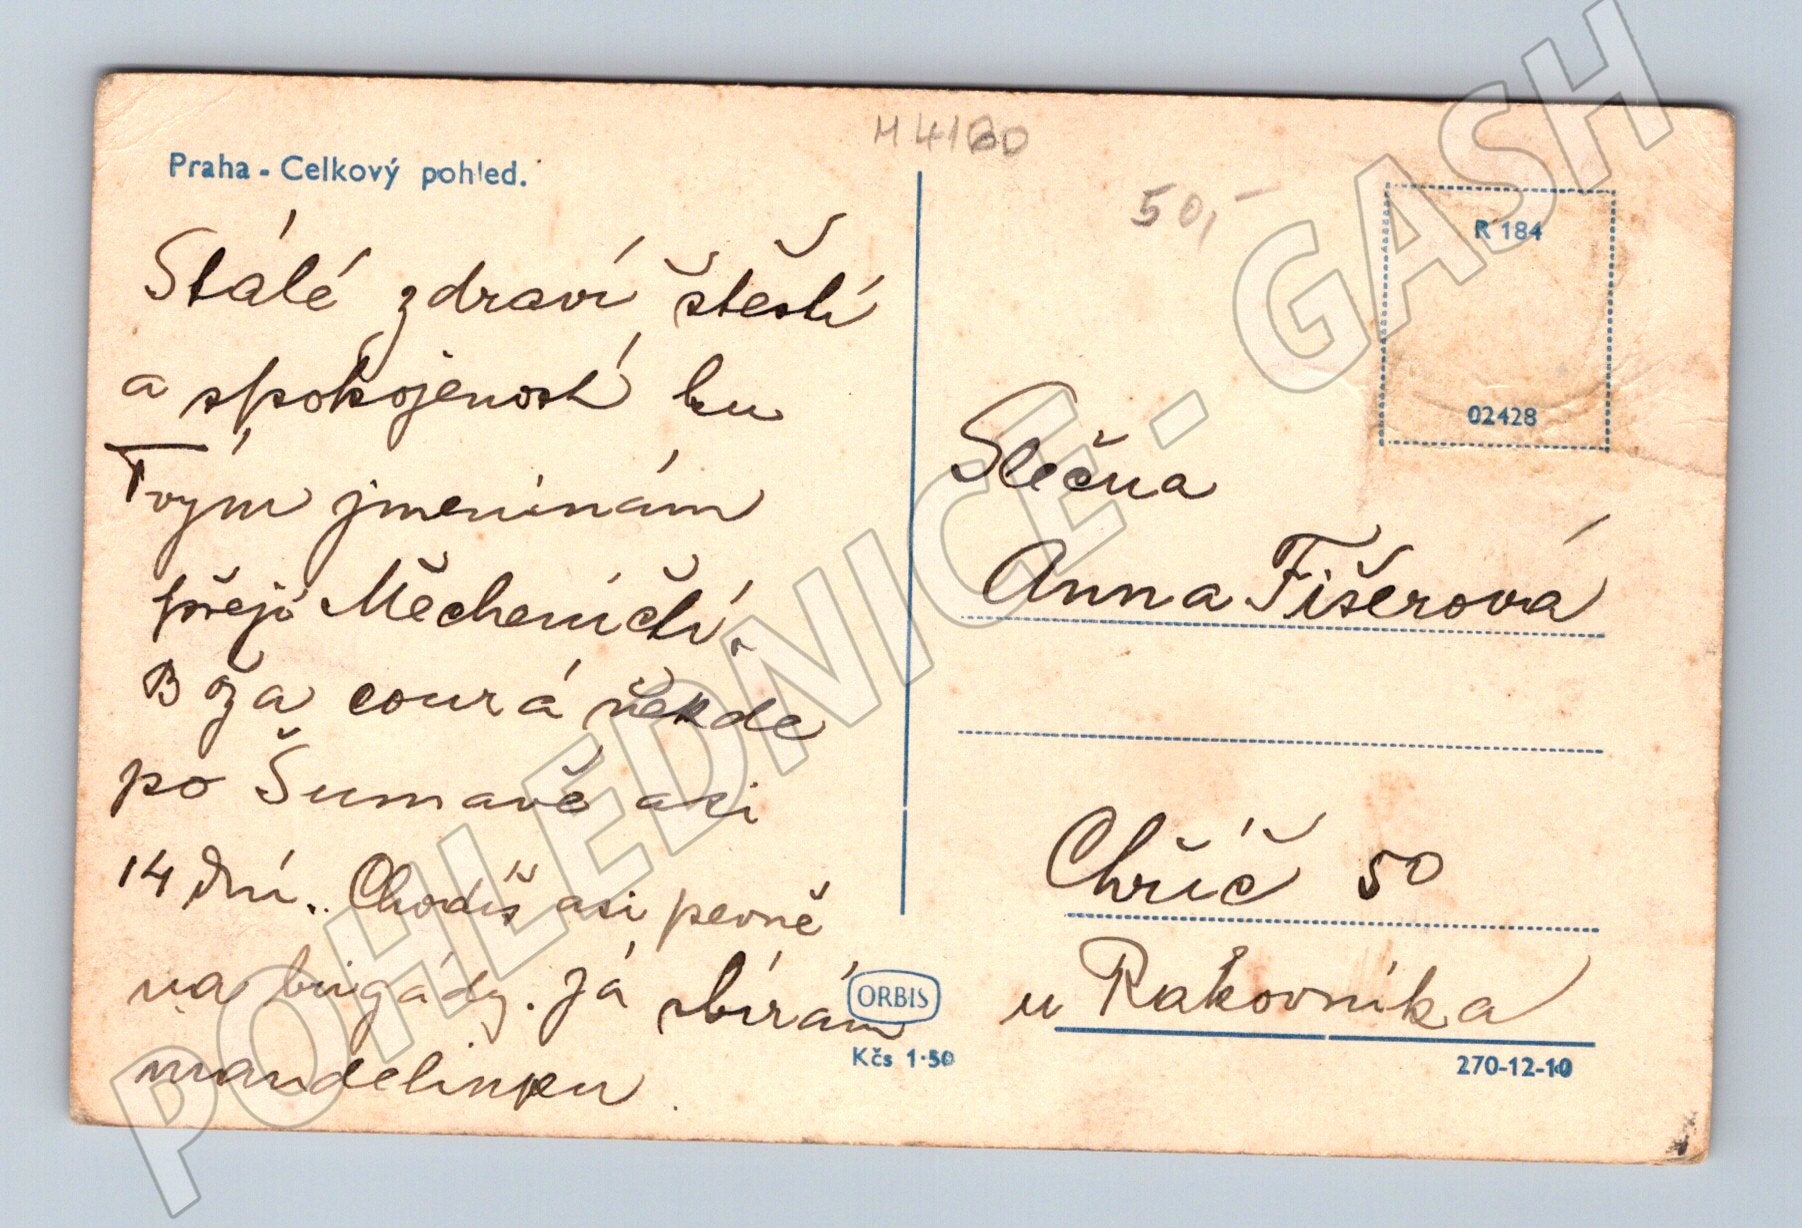 Praha - Celkový pohled.
H 4160
50,-
R 184
02428
Stálé zdraví štěstí
a spokojenost ku
Tvým jmeninám
přejí Měcheničtí.
Boža courá někde
po Šumavě asi
14 dní. Chodíš asi pevně
na brigády. Já sbírám
mandelinku.
Slečna
Anna Fišerová
Chříč 50
u Rakovníka
ORBIS
Kčs 1·50
270-12-10
POHLEDNICE - GASH